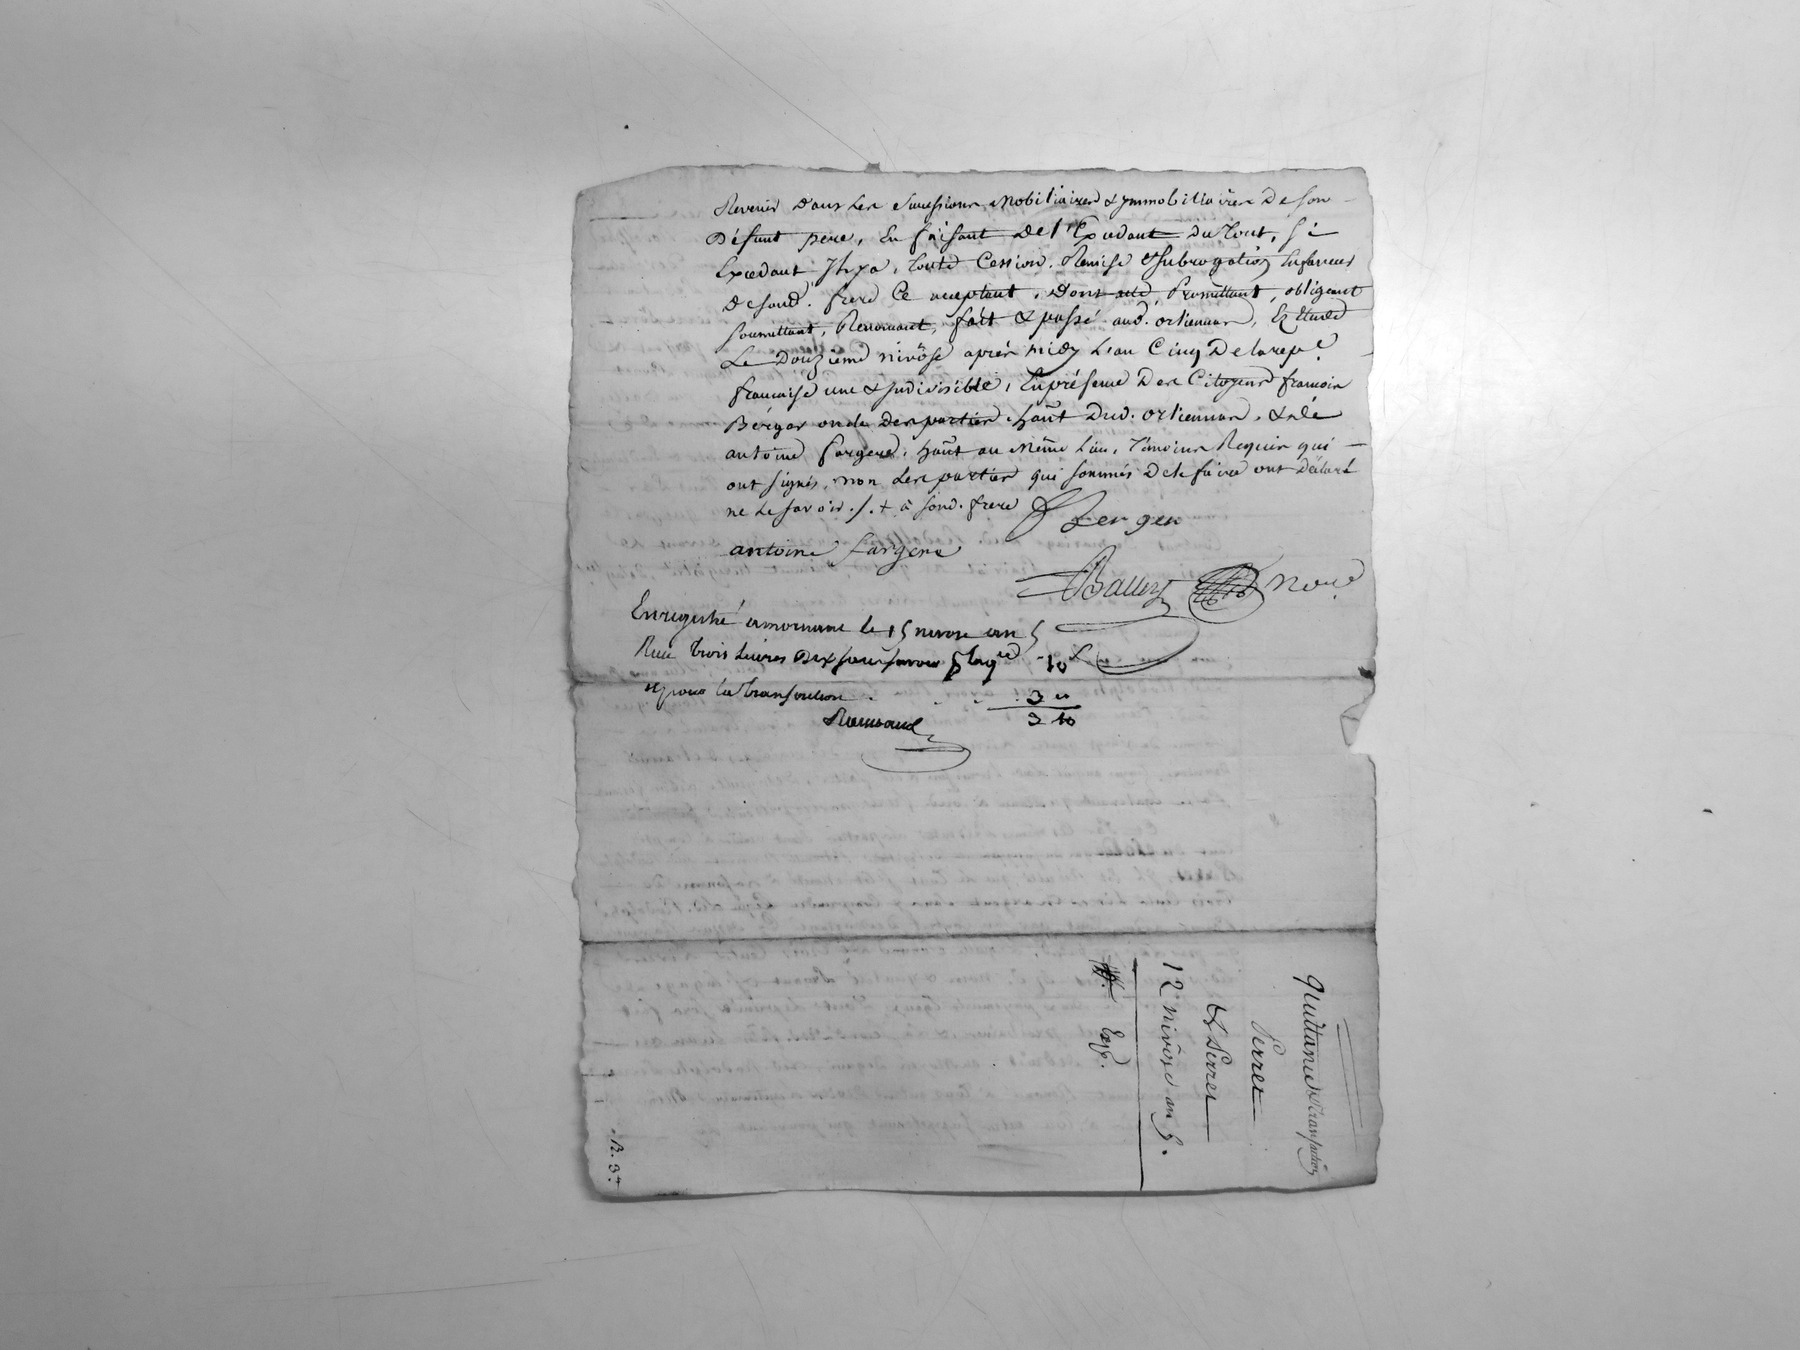 Revenir dans les successions mobiliaires & ymmobiliaires de son
Défunt pere, En faisant de l'Excedant du tout, si
Excedant Il y a, toute Cession, Remise & subrogation En faveur
de sond. frere Ce acceptant, Dont acte, Promettant, obligeant
soumettant, Renonçant, fait & passé aud. orlienna, Etude
Le Douzieme nivôse après midy L'an Cinq De la rep.e
française une & Indivisible, En présence Des Citoyens françois
Berger oncle des parties hânt dud. orliennas, & de
antoine fargere, hânt au même Lieu, témoins Requis qui
ont signés, non Les parties qui sommés de le faire ont déclaré
ne le savoir ./. + à sond. frere Berger
antoine fargere
Balley No.re
Enregistré a mornant le 15 nivose an 5
Reçu trois Livres Dix sous savoir 10
et pour la transaction 3
Renaud 3 10
Quittance & transaction
Serret
& Serret
12 Nivôse an 5.
Exp.
R. 3